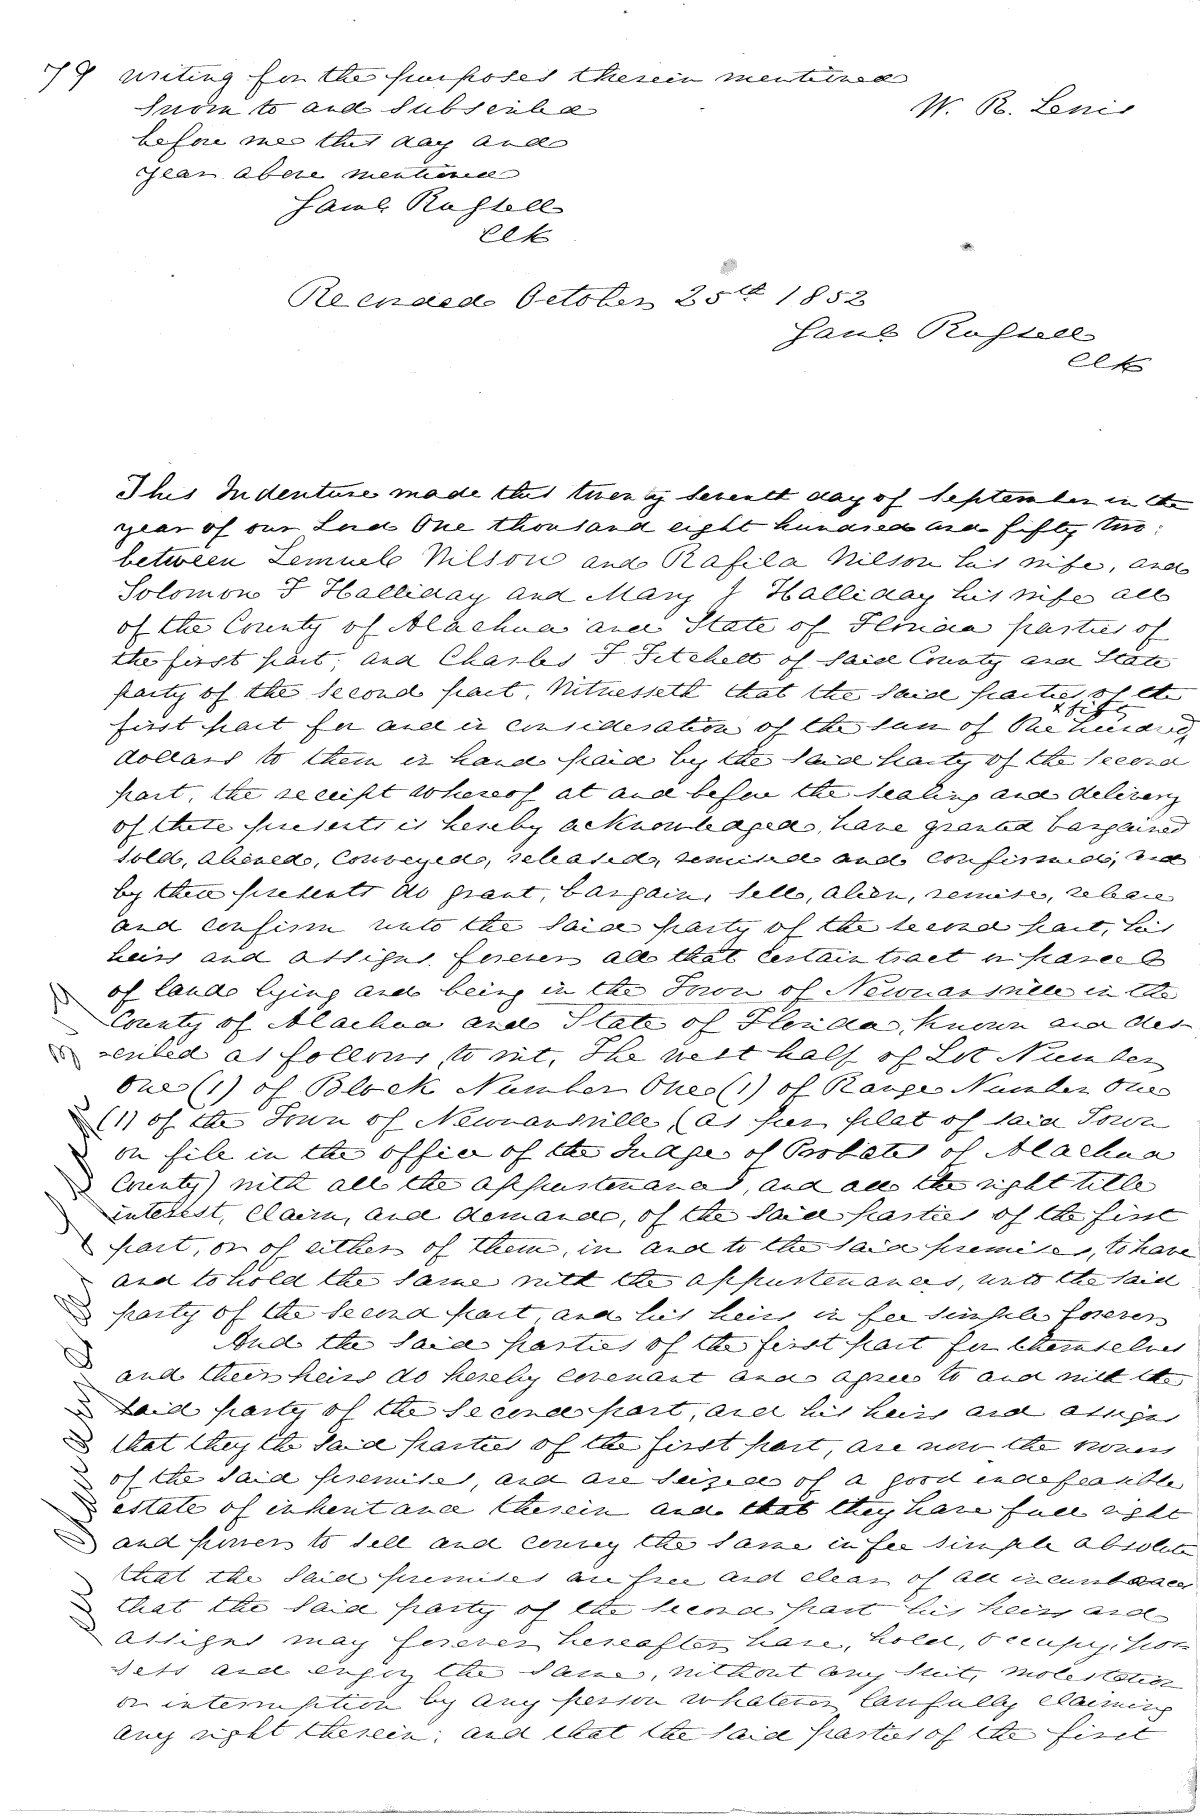 79 writing for the purposes therein mentioned
Sworn to and Subscribed
W. R. Lewis
before me this day and
year above mentioned
Saml Russell
Clk
Recorded October 25th 1852
Saml Russell
Clk
This Indenture made this twenty seventh day of September in the
year of our Lord One thousand eight hundred and fifty two;
between Lemuel Wilson and Rafila Wilson his wife, and
Solomon F Halliday and Mary J Halliday his wife all
of the County of Alachua and State of Florida parties of
the first part; and Charles F Fitchett of said County and State
party of the second part. Witnesseth that the said parties of the
first part for and in consideration of the sum of One hundred
& fifty
dollars to them in hand paid by the said party of the second
part, the receipt whereof at and before the sealing and delivery
of these presents is hereby acknowledged, have granted bargained
sold, aliened, conveyed, released, remised and confirmed, and
by these presents do grant, bargain, sell, alien, remise, release
and confirm unto the said party of the second part, his
heirs and assigns forever all that certain tract or parcel
of land lying and being in the Town of Newnansville in the
County of Alachua and State of Florida, known and des-
-cribed as follows, to wit, The west half of Lot Number
One (1) of Block Number One (1) of Range Number One
(1) of the Town of Newnansville, (as per plat of said Town
on file in the office of the Judge of Probates of Alachua
County) with all the appurtenances, and all the right title
interest, claim, and demand, of the said parties of the first
part, or of either of them, in and to the said premises, to have
and to hold the same with the appurtenances, unto the said
party of the second part and his heirs in fee simple forever
And the said parties of the first part for themselves
and their heirs do hereby covenant and agree to and with the
said party of the second part, and his heirs and assigns
that they the said parties of the first part, are now the owners
of the said premises, and are seized of a good indefeasible
estate of inheritance therein and that they have full right
and power to sell and convey the same in fee simple absolute
that the said premises are free and clear of all incumbrances
that the said party of the second part his heirs and
assigns may forever hereafter have, hold, occupy, pos-
sess and enjoy the same, without any suit, molestation
or interruption by any person whatever lawfully claiming
any right therein; and that the said parties of the first
page 319